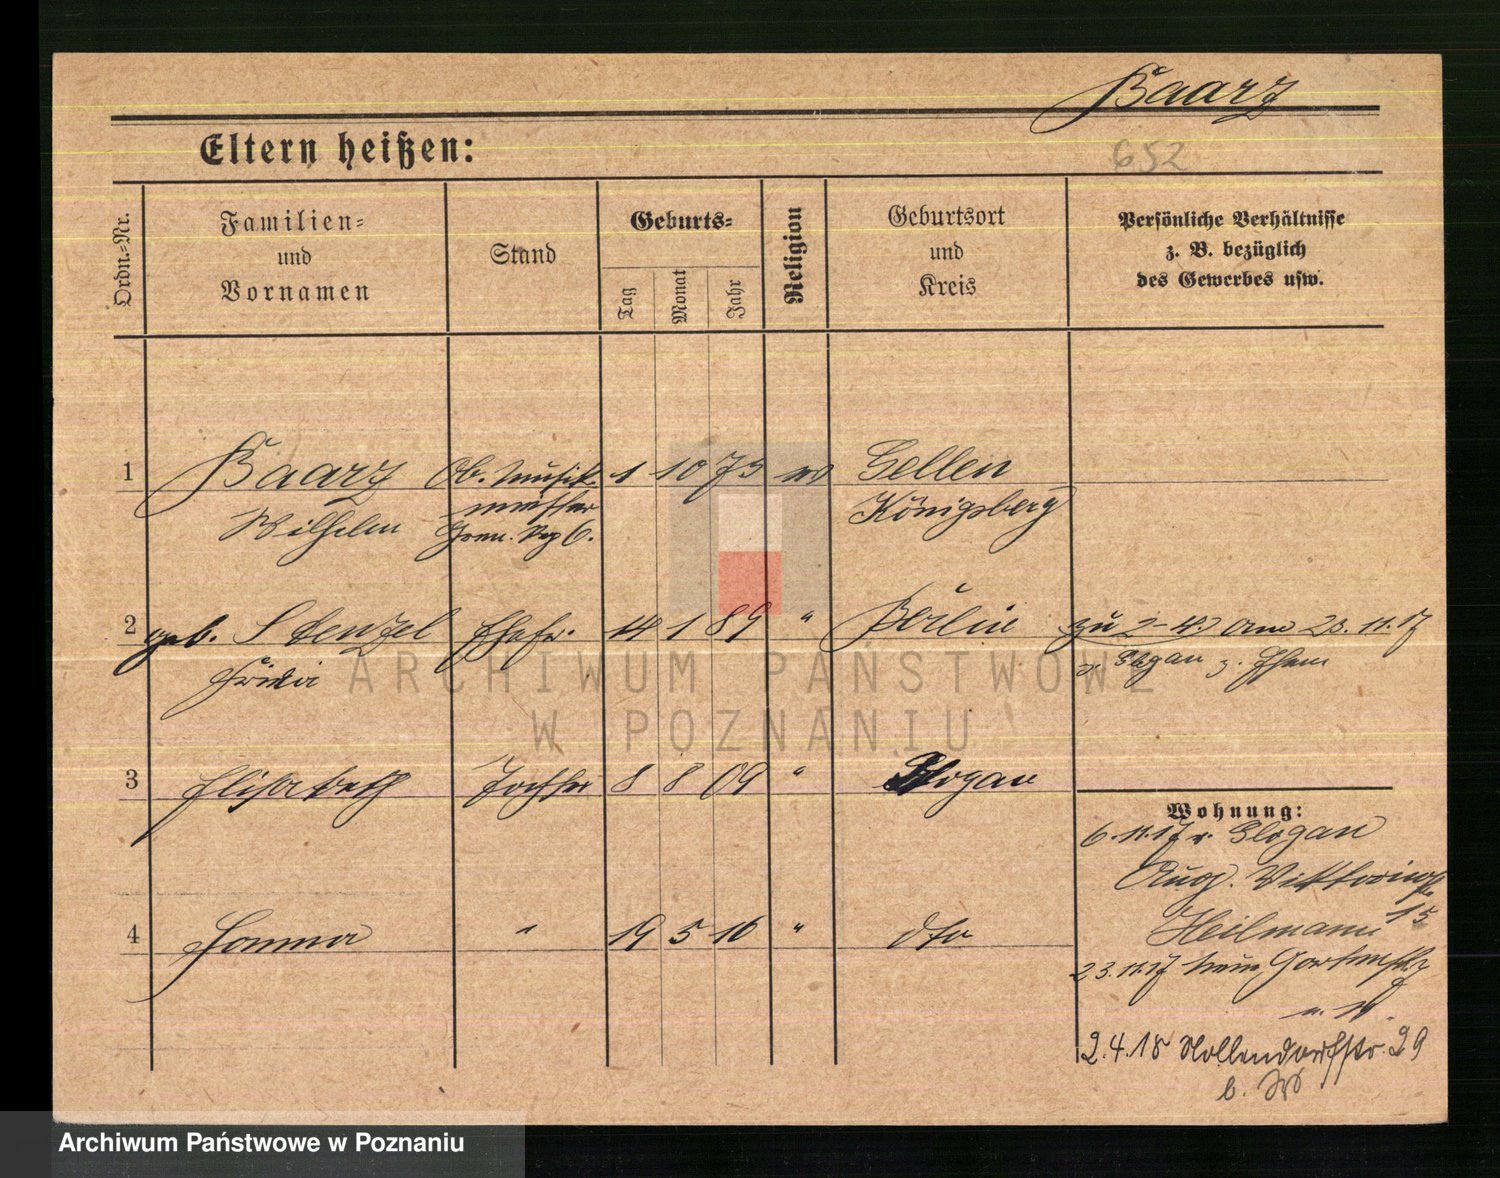 Baarz
Eltern heißen:
652
Ordn.-Nr.
Familien-
und
Vornamen
Stand
Geburts-
Tag
Monat
Jahr
Religion
Geburtsort
und
Kreis
Persönliche Verhältnisse
z. B. bezüglich
des Gewerbes usw.
1 Baarz Ob. Musik 1 10 73 Gellen
meister
Wilhelm Gren. Rg 6. Königsberg
2 geb. Stenzel Ehefr. 14 1 89 " Berlin zu 2-4. am 23.11.17
Frida v. Glogau z. Ehem
3 Elisabeth Tochter 8 8 09 " Glogau
Wohnung:
6.11.17 v. Glogau
Aug. Viktoriastr.
15
4 19 5 16 " dto
Heilmann
23.11.17 Gartenstr
2.4.18 Nollendorfstr. 29
b.
ARCHIWUM PAŃSTWOWE
W POZNANIU
Archiwum Państwowe w Poznaniu